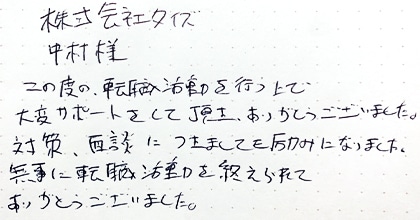 株式会社タイズ
中村様
この度の、転職活動を行う上で
大変サポートをして頂き、ありがとうございました。
対策、面談につきましても励みになりました。
無事に転職活動を終えられて
ありがとうございました。